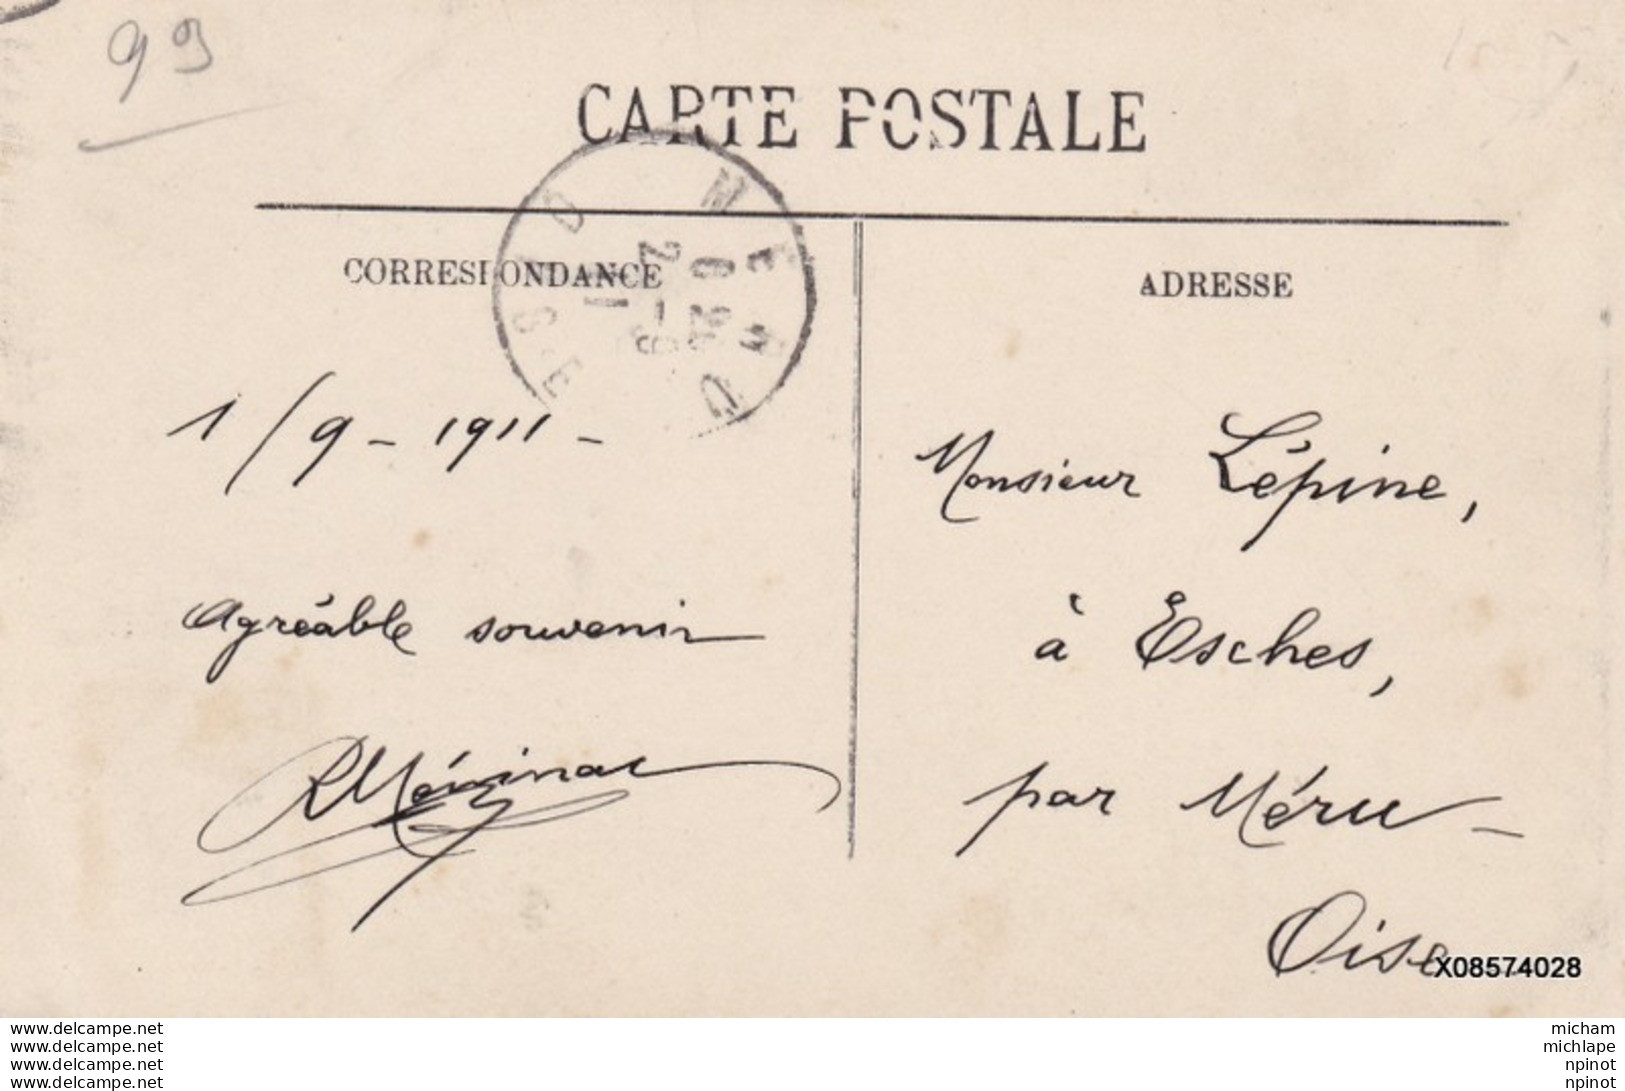 99
CARTE POSTALE
CORRESPONDANCE
ADRESSE
MERU
OISE
1/9 - 1911 -
Agréable souvenir
Monsieur Lépine,
à Esches,
par Méru -
Oise
X08574028
www.delcampe.net
www.delcampe.net
www.delcampe.net
www.delcampe.net
micham
michlape
npinot
npinot